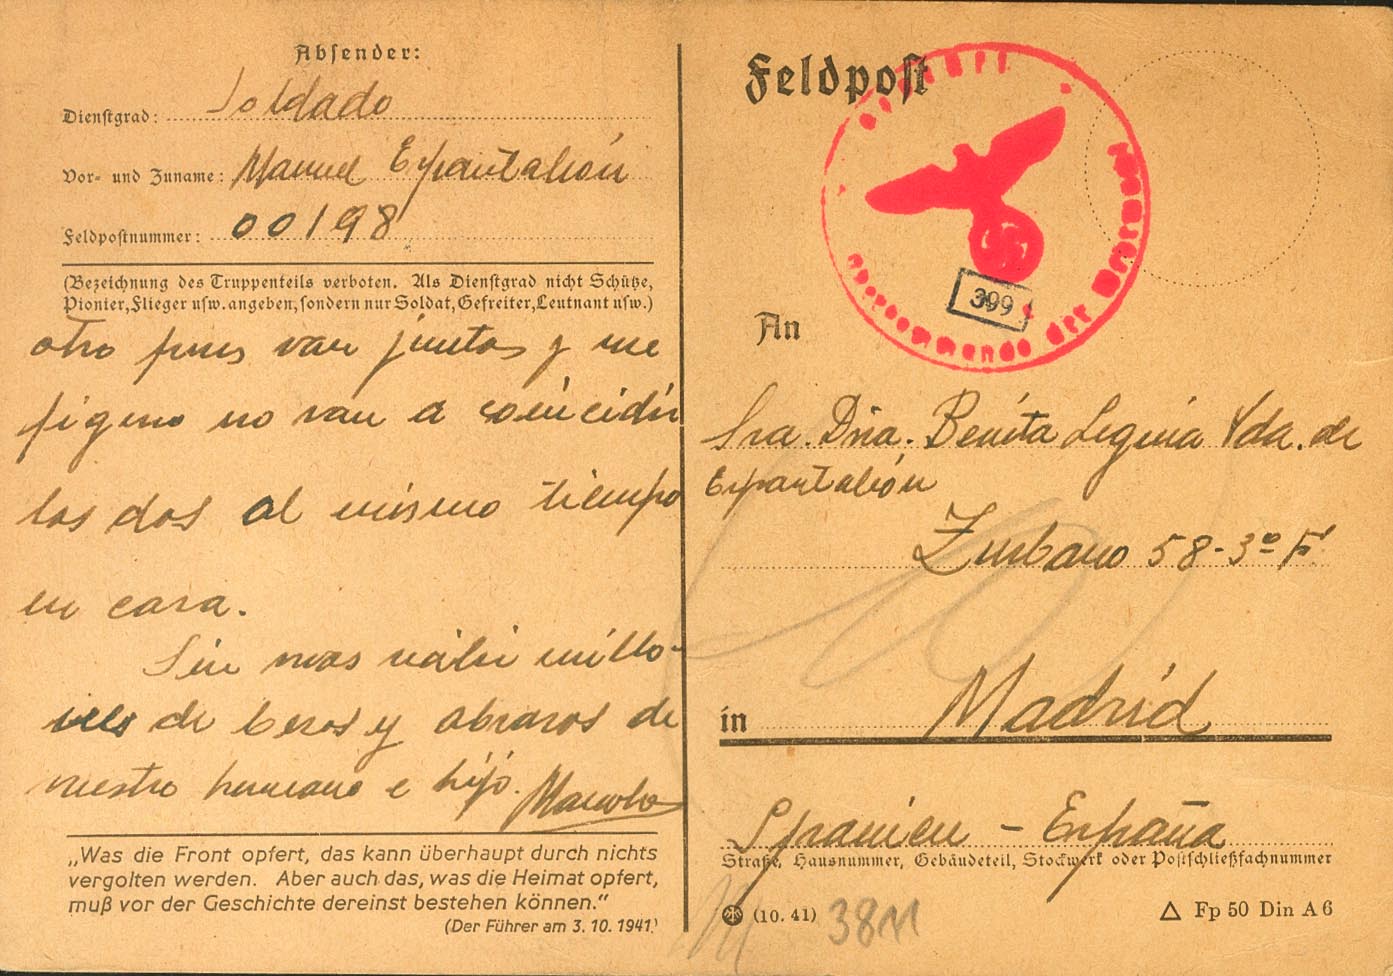 Absender:
Dienstgrad: Soldado
Vor- und Zuname: Manuel Espantaleón
Feldpostnummer: 00198
(Bezeichnung des Truppenteils verboten. Als Dienstgrad nicht Schütze,
Pionier, Flieger usw. angeben, sondern nur Soldat, Gefreiter, Leutnant usw.)
otro pues van juntos y me
figuro no van a coincidir
los dos al mismo tiempo
en casa.
Sin mas recibir millo-
nes de besos y abrazos de
nuestro hermano e hijo. Manolo
„Was die Front opfert, das kann überhaupt durch nichts
vergolten werden. Aber auch das, was die Heimat opfert,
muß vor der Geschichte dereinst bestehen können.“
(Der Führer am 3. 10. 1941.)
Feldpost
Geprüft
Oberkommando der Wehrmacht
399
An
Sra. Dña. Benita Vda. de
Espantaleón
Zurbano 58-3º
in Madrid
Spanien - España
Straße, Hausnummer, Gebäudeteil, Stockwerk oder Postschließfachnummer
(10. 41)
△ Fp 50 Din A 6